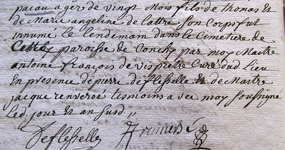 pacou agez de vingt mois fils de thomas &
de marie angeline de lettre, son corps fut
innumé le lendemain dans le Cimetiere de
paroisse de Conchy par moy Maitre
antoine françois de vis pretre Curé dud Lieu
en presence de pierre de flesselle & de Maitre
jacque renversé tesmoins avec moy soussigné
Les jour & an susd
Deflesselle